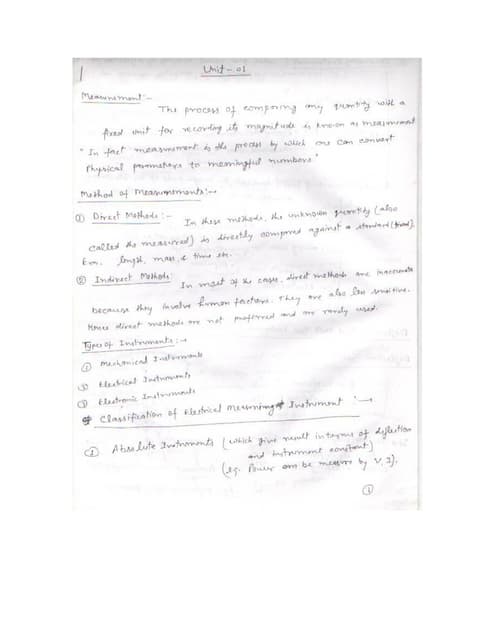 1
Unit-01
Measurement:-
The process of comparing any quantity with a
fixed unit for recording its magnitude is known as measurement
"In fact measurement is the process by which one can convert
Physical parameters to meaningful numbers"
Method of Measurements:-
① Direct Methods:- In these methods, the unknown quantity (also
called the measured) is directly compared against a standard (fixed).
Exm. length, mass, & time etc.
② Indirect Methods: In most of the cases, direct methods are inaccurate
because they involve human factors. They are also less sensitive.
Hence direct methods are not preferred and are rarely used.
Types of Instruments:-
① Mechanical Instruments
② Electrical Instruments
③ Electronic Instruments
Classification of Electrical Measuring Instrument :-
① Absolute Instruments (which give result in terms of deflection
and instrument constant)
(eg. Power can be measure by V, I).
①